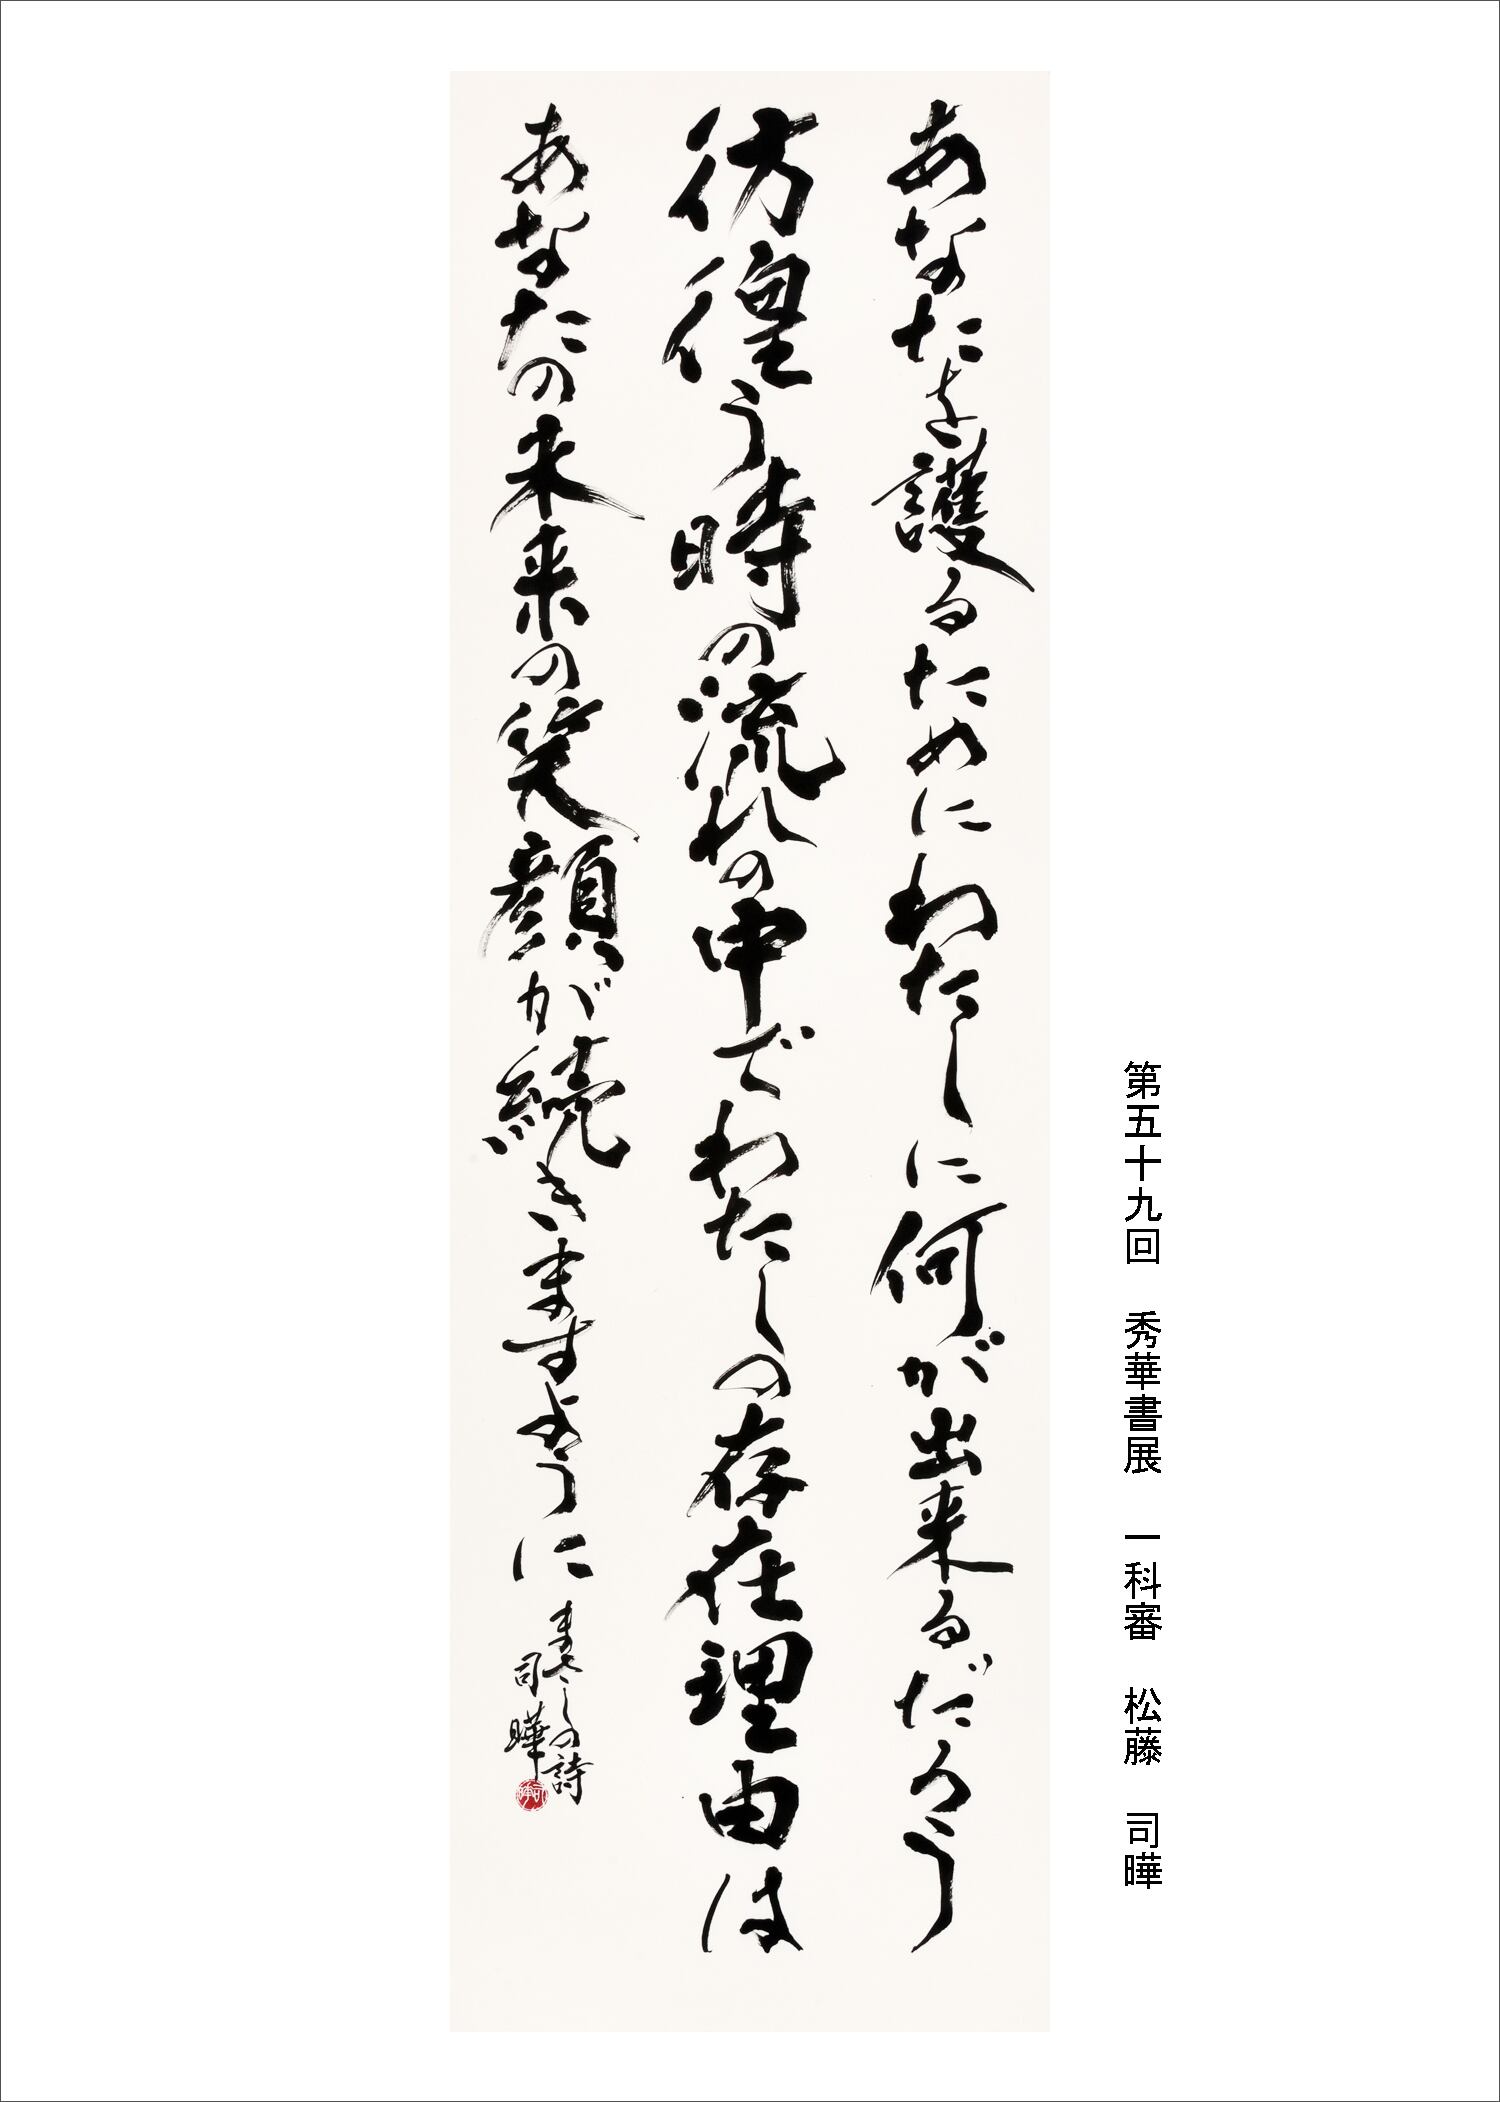 第五十九回　秀華書展　一科審　松藤　司曄
あなたを護るためにわたしに何が出来るだろう
彷徨う時の流れの中でわたしの存在理由は
あなたの未来の笑顔が続きますように
の詩
司曄